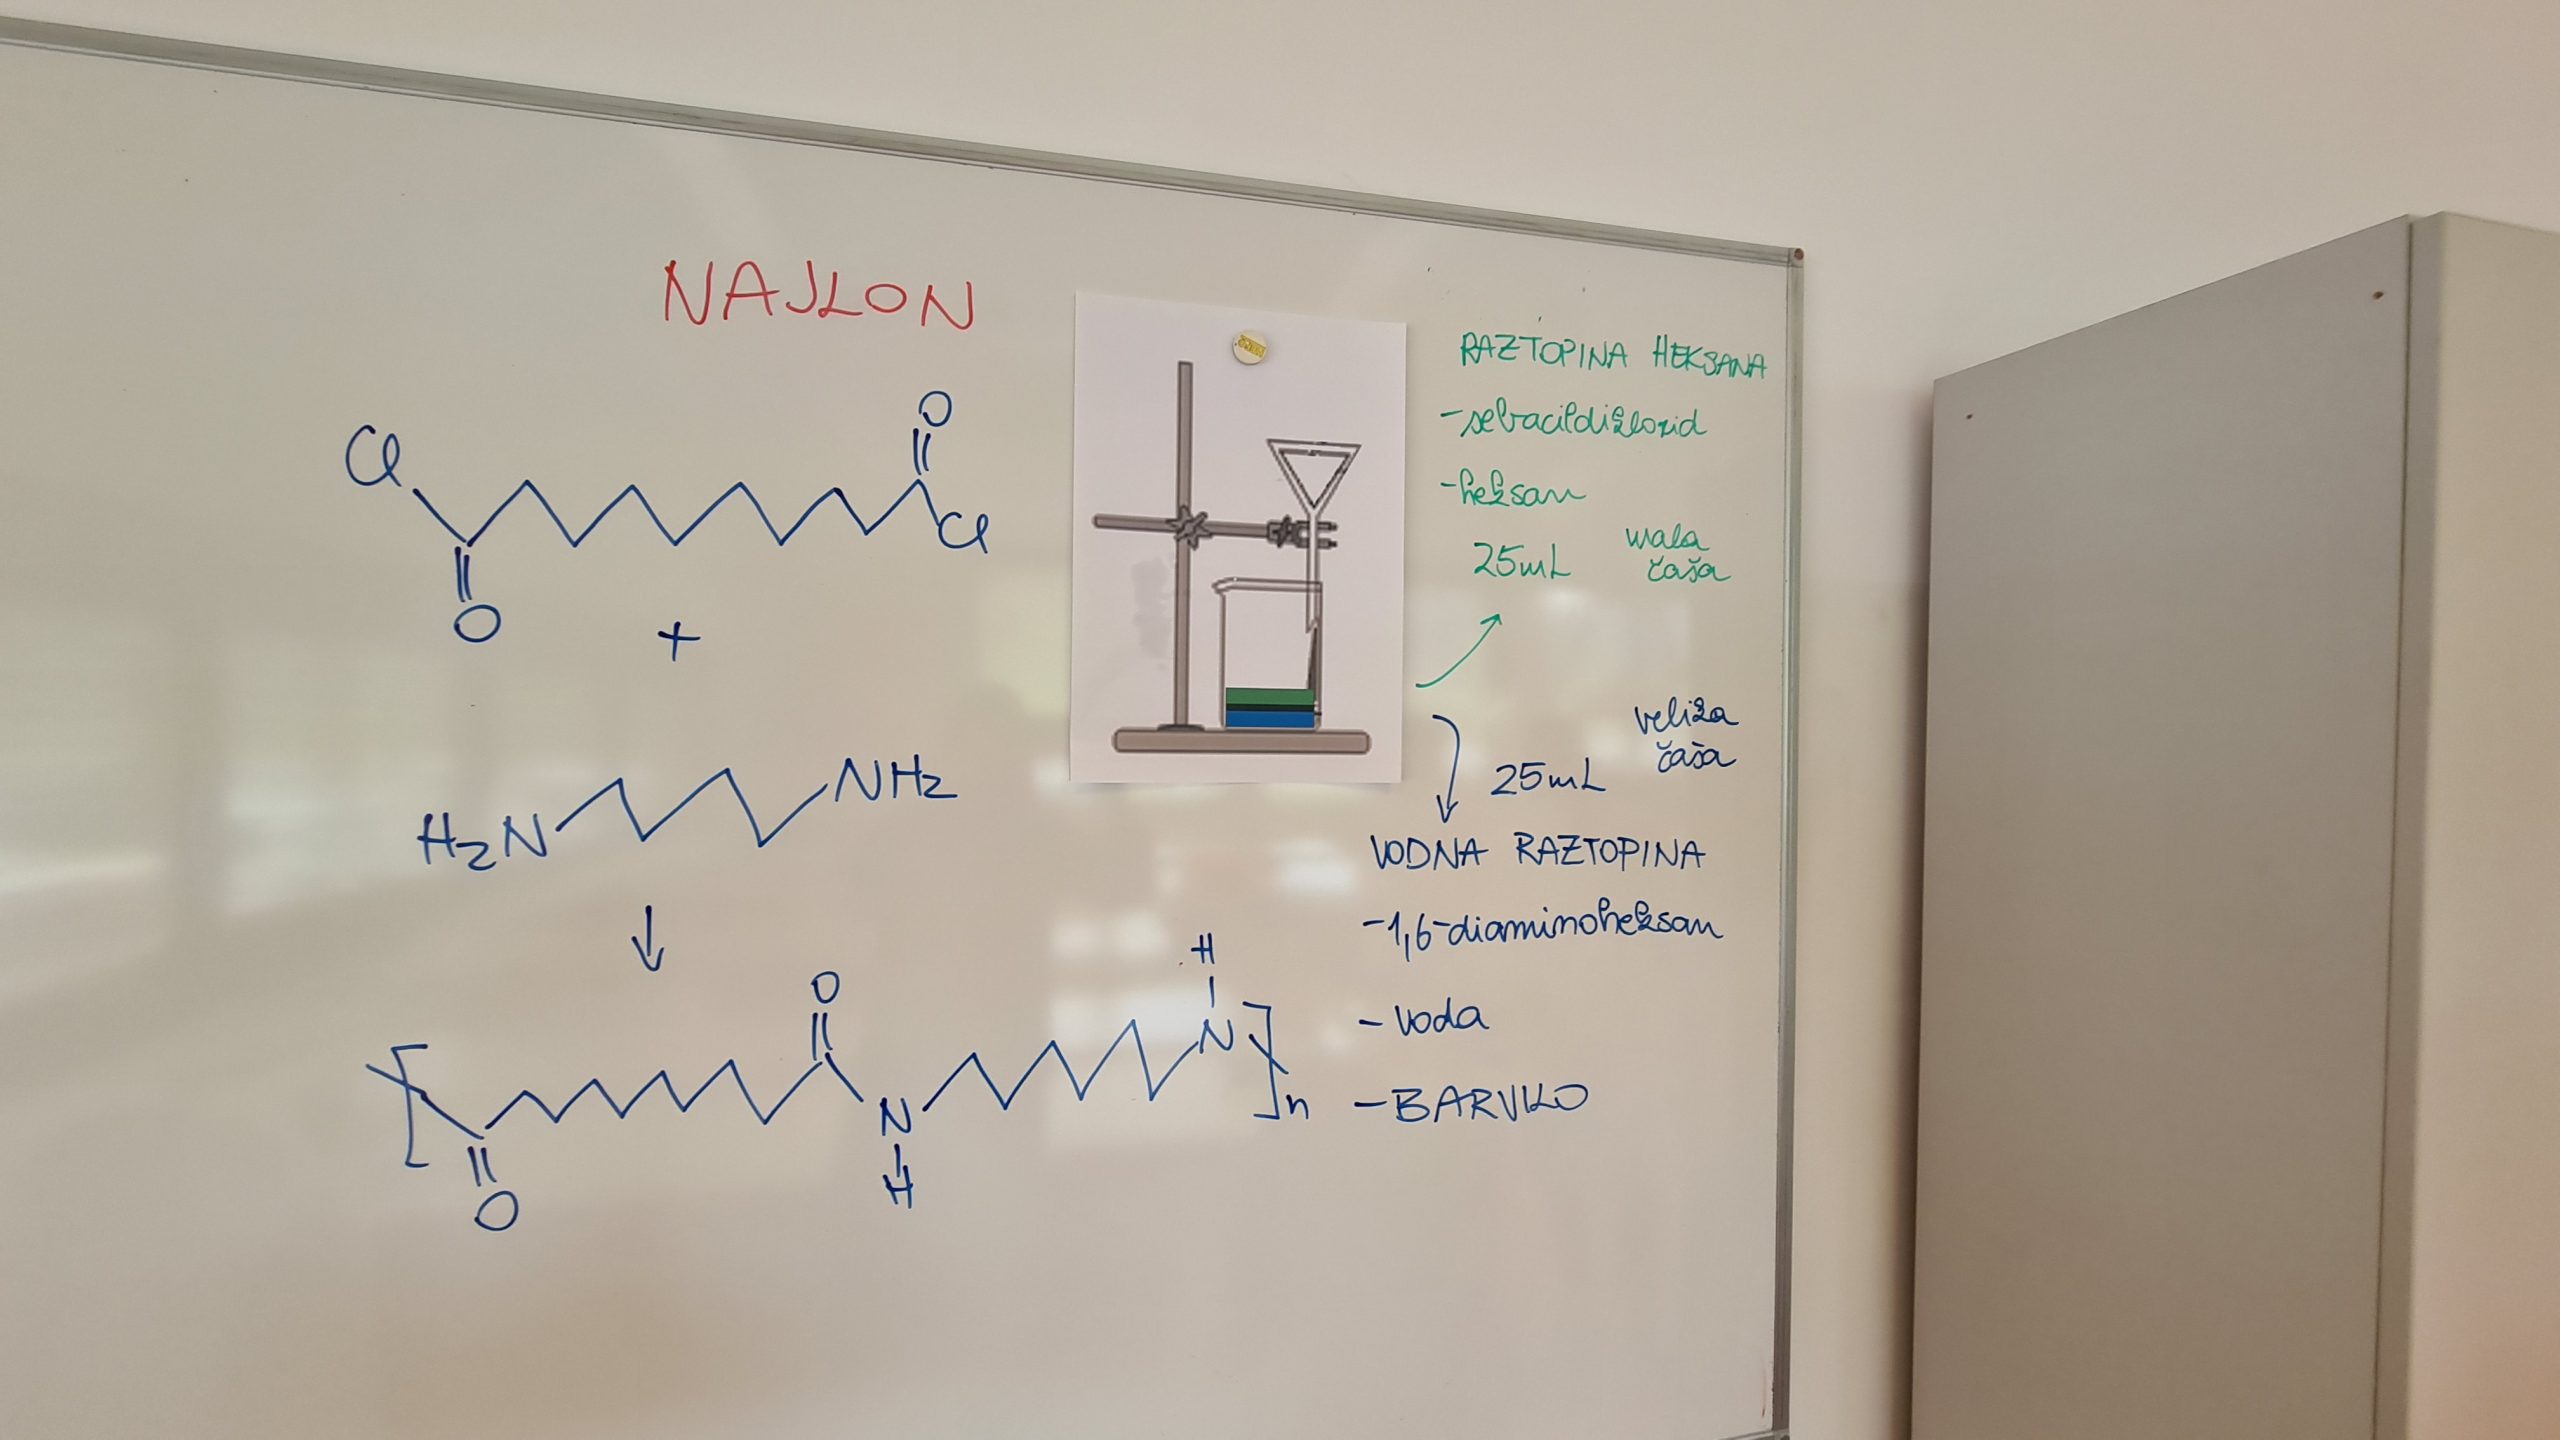 NAJLON
Cl
O
O
Cl
+
H2N
NH2
O
O
N
H
H
N
n
RAZTOPINA HEKSANA
-sebacildiklorid
-heksan
25mL
mala
čaša
velika
čaša
25mL
VODNA RAZTOPINA
-1,6-diaminoheksan
- voda
-BARVILO